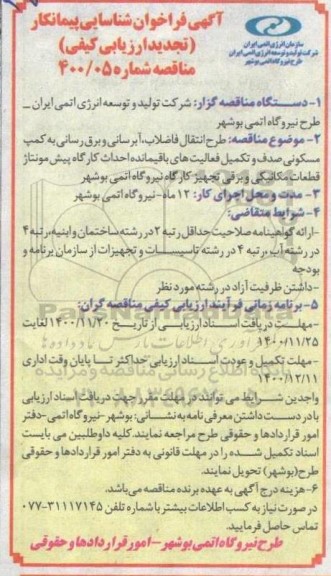 آگهی فراخوان شناسایی پیمانکار
(تجدید ارزیابی کیفی)
مناقصه شماره ۴۰۰/۰۵
سازمان انرژی اتمی ایران
شرکت تولید و توسعه انرژی اتمی ایران
طرح نیروگاه اتمی بوشهر
۱- دستگاه مناقصه گزار: شرکت تولید و توسعه انرژی اتمی ایران -
طرح نیروگاه اتمی بوشهر
۲- موضوع مناقصه: طرح انتقال فاضلاب، آبرسانی و برق رسانی به کمپ
مسکونی صدف و تکمیل فعالیت های باقیمانده احداث کارگاه پیش مونتاژ
قطعات مکانیکی و برقی تجهیز کارگاه نیروگاه اتمی بوشهر
۳- مدت و محل اجرای کار: ۱۲ ماه-نیروگاه اتمی بوشهر
۴- شرایط متقاضی:
-ارائه گواهینامه صلاحیت حداقل رتبه ۲ در رشته ساختمان و ابنیه، رتبه ۴
در رشته آب، رتبه ۴ در رشته تاسیسات و تجهیزات از سازمان برنامه و
بودجه
-داشتن ظرفیت آزاد در رشته مورد نظر
۵- برنامه زمانی فرآیند ارزیابی کیفی مناقصه گران:
-مهلت دریافت اسناد ارزیابی از تاریخ ۱۴۰۰/۱۱/۲۰ لغایت
۱۴۰۰/۱۱/۲۵
-مهلت تکمیل و عودت اسناد ارزیابی حداکثر تا پایان وقت اداری
۱۴۰۰/۱۲/۱۱
واجدین شرایط می توانند در مهلت مقرر جهت دریافت اسناد ارزیابی
با در دست داشتن معرفی نامه به نشانی: بوشهر-نیروگاه اتمی-دفتر
امور قراردادها و حقوقی طرح مراجعه نمایند. کلیه داوطلبین می بایست
اسناد تکمیل شده را در مهلت قانونی به دفتر امور قراردادها و حقوقی
طرح (بوشهر) تحویل نمایند.
۶- هزینه درج آگهی به عهده برنده مناقصه می‌باشد.
در صورت نیاز به کسب اطلاعات بیشتر با شماره تلفن ۳۱۱۱۷۱۴۵-۰۷۷
تماس حاصل فرمایید.
طرح نیروگاه اتمی بوشهر-امور قراردادها و حقوقی